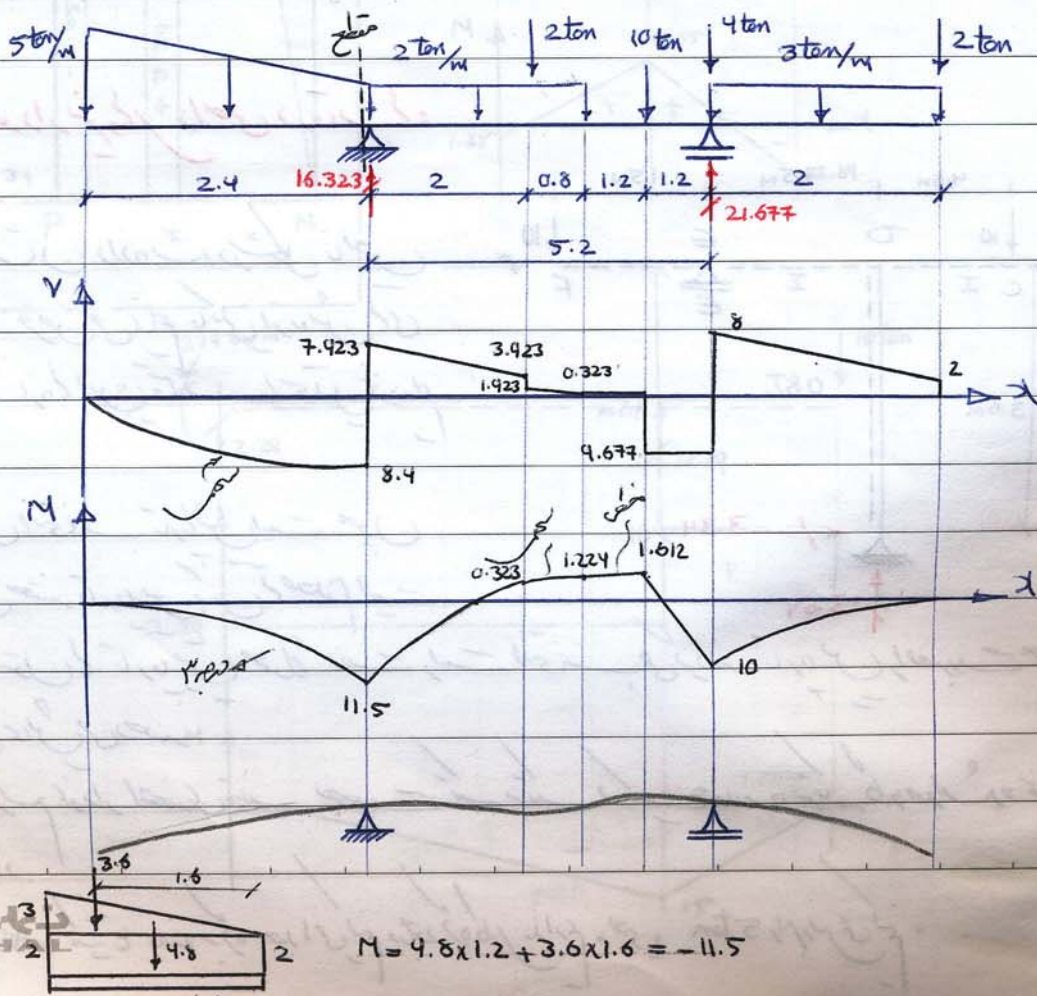 5 ton/m
مقطع ـ ١
2 ton/m
2 ton
10 ton
4 ton
3 ton/m
2 ton
2.4
16.323
2
0.8
1.2
1.2
2
21.677
5.2
V
7.923
3.923
1.923
0.323
8
2
x
8.4
9.677
M
0.323
1.224
1.612
x
11.5
10
3.6
1.6
3
2
4.8
2
M = 4.8x1.2 + 3.6x1.6 = -11.5